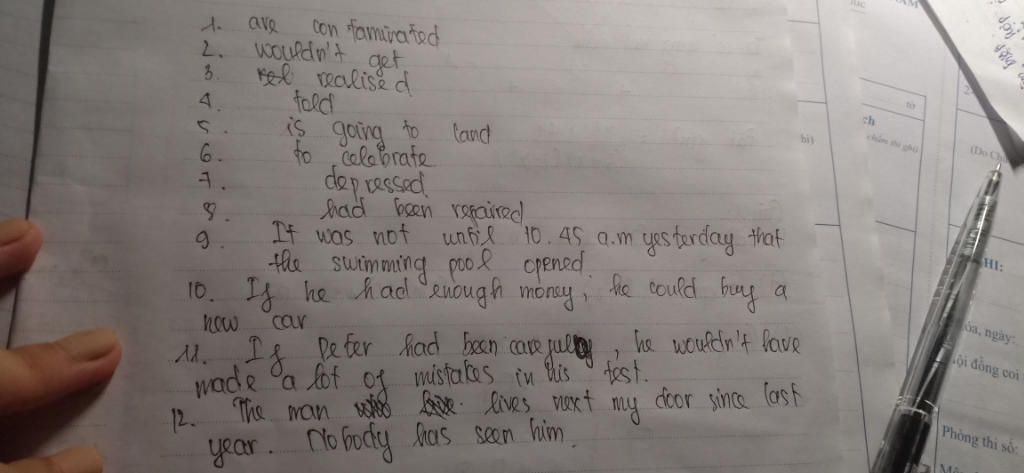 1. are contaminated
2. wouldn't get
3. realised
4. told
5. is going to land
6. to celebrate
7. depressed.
8. had been repaired
9. It was not until 10.45 a.m yesterday that
the swimming pool opened.
10. If he had enough money, he could buy a
new car
11. If Peter had been careful, he wouldn't have
made a lot of mistakes in his test.
12. The man lives next my door since last
year. Nobody has seen him.
tờ
ch
chấm thi ghi)
hi)
2.
(Do Ch
HI:
óa, ngày:
ội đồng coi
Phòng thi số: